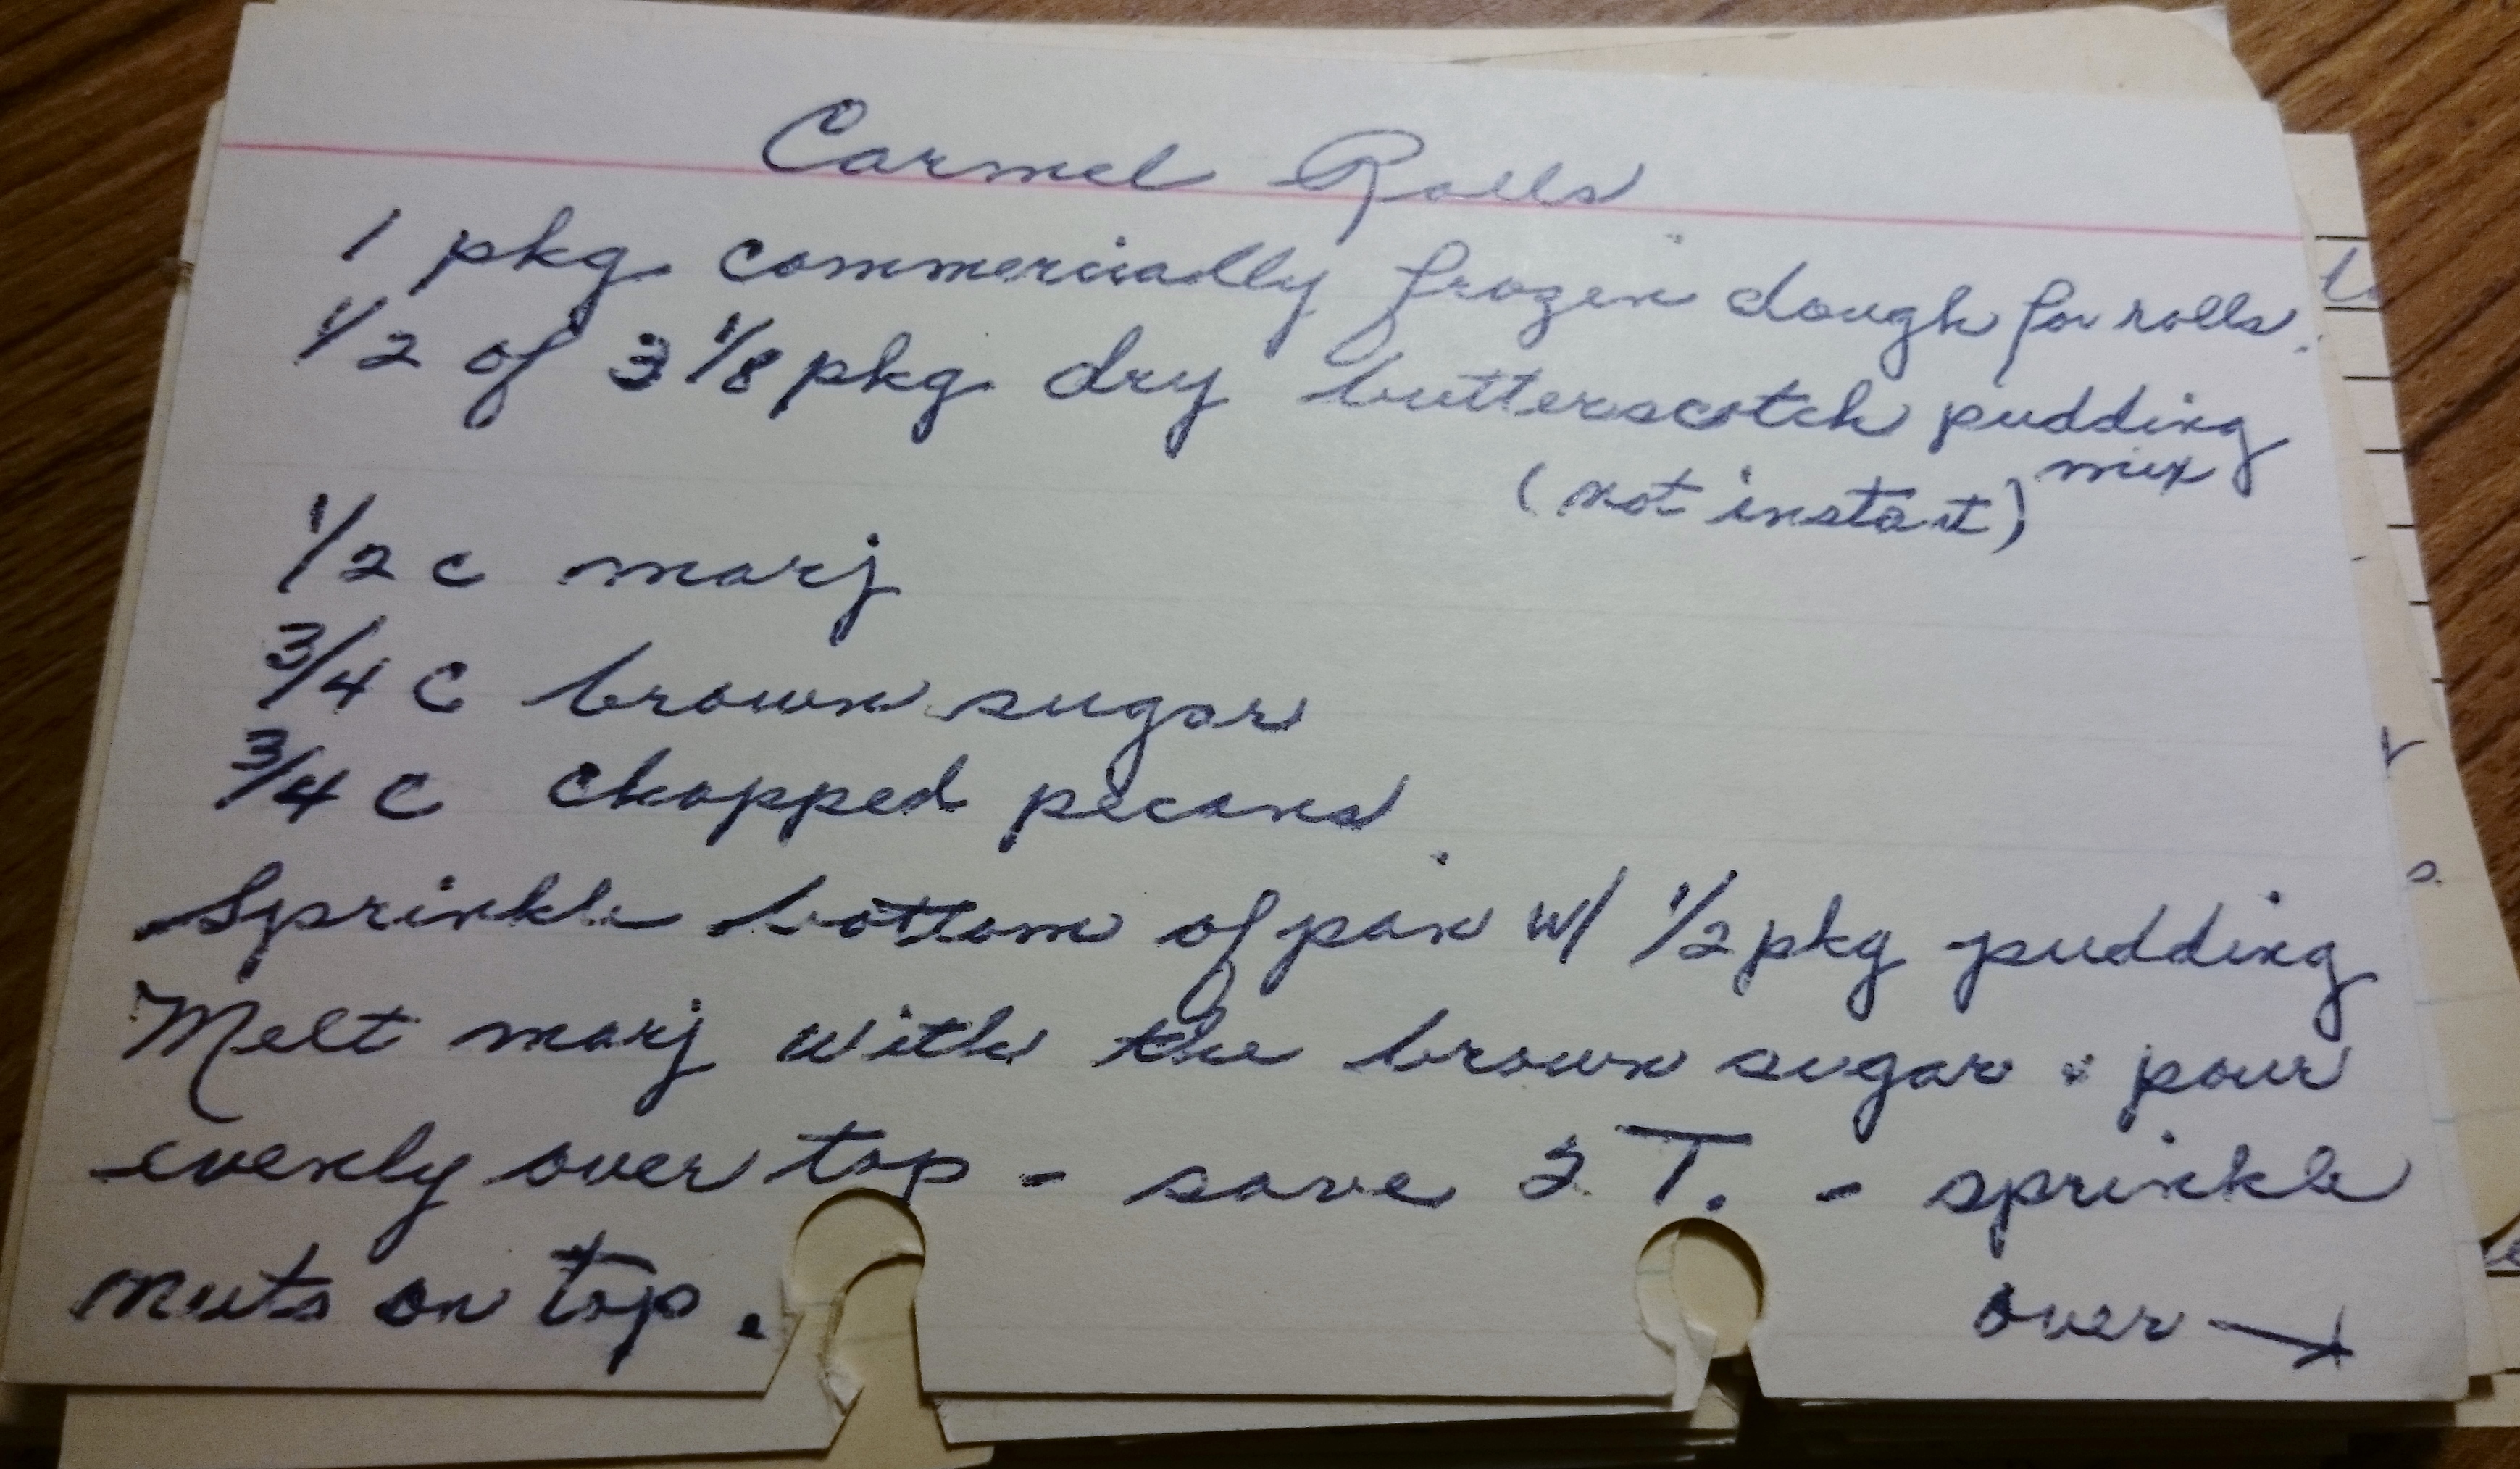 Carmel Rolls
1 pkg. commericially frozen dough for rolls.
1/2 of 3 1/8 pkg. dry butterscotch pudding
(not instant) mix
1/2 c marj
3/4 c brown sugar
3/4 c chopped pecans
Sprinkle bottom of pan w/ 1/2 pkg pudding
Melt marj with the brown sugar & pour
evenly over top - save 2 T. - sprinkle
nuts on top.
over →